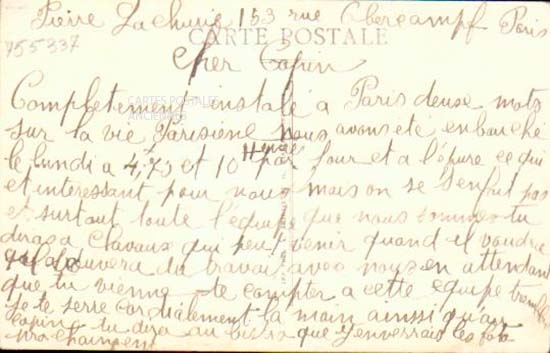 Pierre Lachurie 153 rue Obercampf Paris
CARTE POSTALE
755337
Cher Copin
CARTES POSTALES
ANCIENNES
Completement instalé a Paris deuse mots
sur la vie Parisiène nous avons été enbauché
le lundi a 4,75 et 10 Heure par jour et a l'épure ce qui
et interessant pour nous mais on se s'enfut pas
et surtout toute l'équipe que nous sommes tu
diras a Clavaux qui peut venir quand il voudra
trouvera du travail avec nous en attendant
que tu vienne te compter a cette équipe
je te serre cordialement la main ainssi qu'au
copin tu dira au bistro que j'enverrais les
prochainement